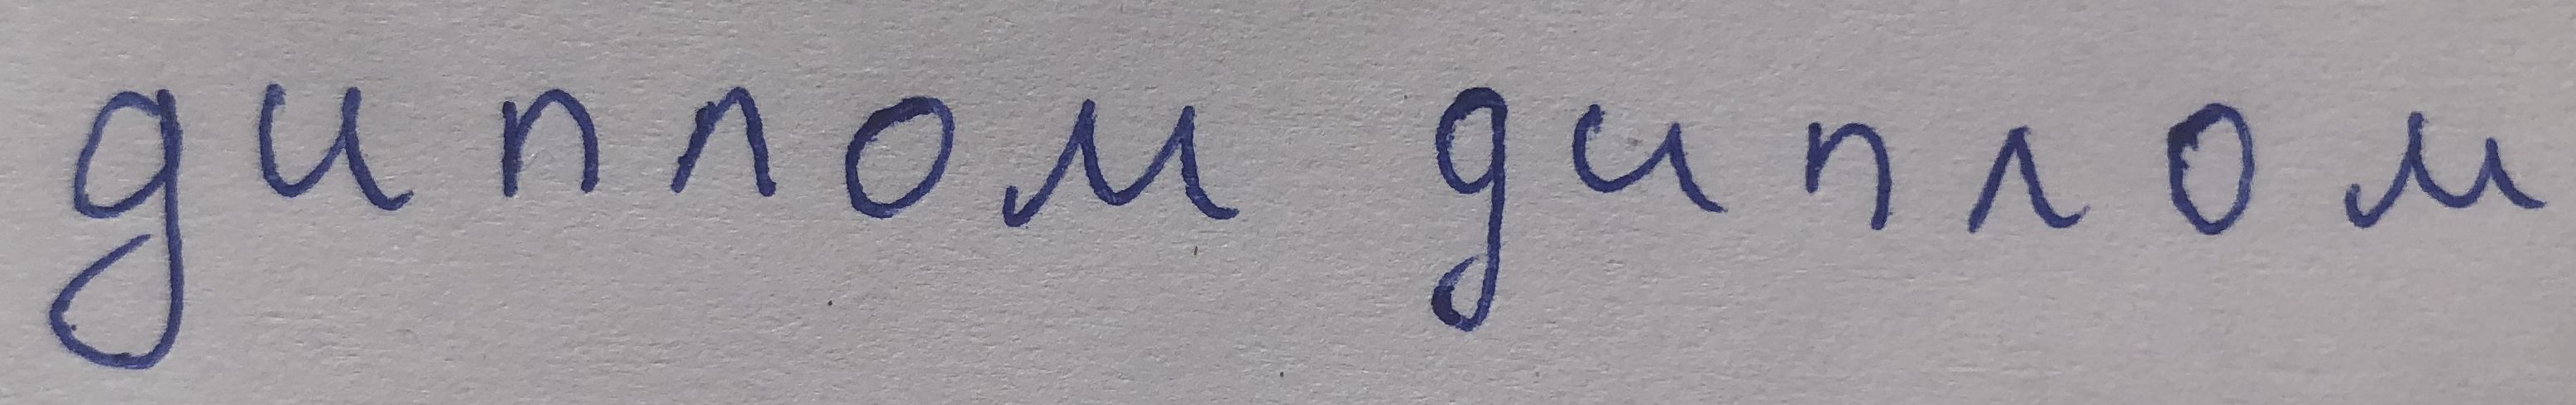 диплом диплом